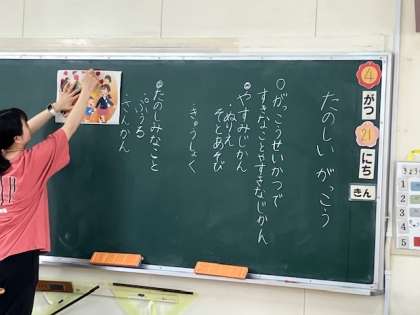 4
がつ
21
にち
きん
たのしい がっこう
○がっこうせいかつで
すきなことやすきなじかん
●やすみじかん
・ぬりえ
・そとあそび
・きゅうしょく
●たのしみなこと
・ぷうる
・さんかん
きょう
1
2
3
4
5